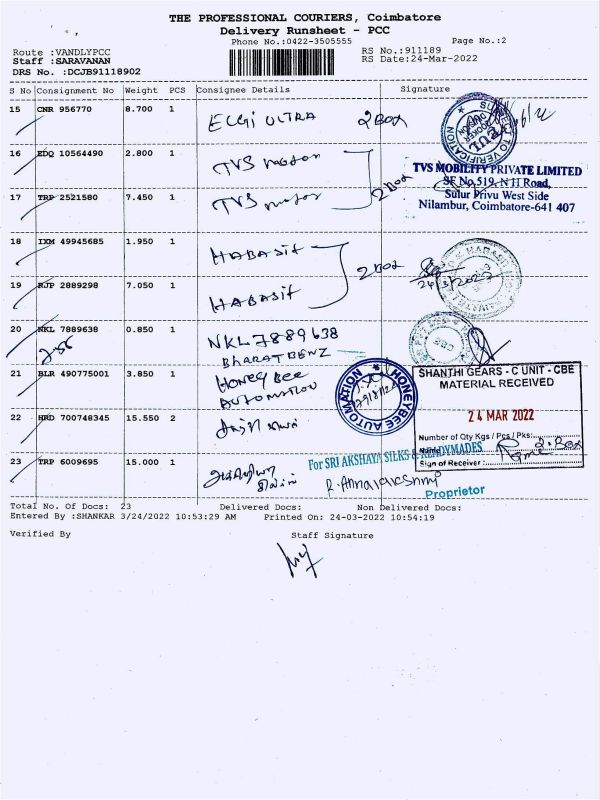 THE PROFESSIONAL COURIERS, Coimbatore
Delivery Runsheet - PCC
Phone No.:0422-3505555
Page No.:2
Route :VANDLYPCC
RS No.:911189
Staff :SARAVANAN
RS Date:24-Mar-2022
DRS No. :DCJB91118902
S No Consignment No Weight PCS Consignee Details Signature
15 CNR 956770 8.700 1 ELGi ULTRA 2 Box
16 EDQ 10564490 2.800 1 TVS motor
2 Box
TVS MOBILITY PRIVATE LIMITED
SF No.519, NTI Road,
17 TRP 2521580 7.450 1 TVS motor
Sulur Privu West Side
Nilambur, Coimbatore-641 407
18 IXM 49945685 1.950 1 HABASit
2 Box
24/3/2022
19 RJP 2889298 7.050 1 HABASit
20 NKL 7889638 0.850 1 NKL 7889638
BharatBENZ
21 BLR 490775001 3.850 1 HONEY BEE
AUTOMATION
HONEYBEE AUTOMATION
SHANTHI GEARS - C UNIT - CBE
MATERIAL RECEIVED
24 MAR 2022
22 HRD 700748345 15.550 2 சாந்தி கியர்ஸ்
Number of Qty Kgs / Pcs / Pks: 2 Box
Name
Sign of Receiver :
23 TRP 6009695 15.000 1
For SRI AKSHAYA SILKS & READYMADES
R. Annalakshmi
Proprietor
Total No. Of Docs: 23 Delivered Docs: Non Delivered Docs:
Entered By :SHANKAR 3/24/2022 10:53:29 AM Printed On: 24-03-2022 10:54:19
Verified By Staff Signature